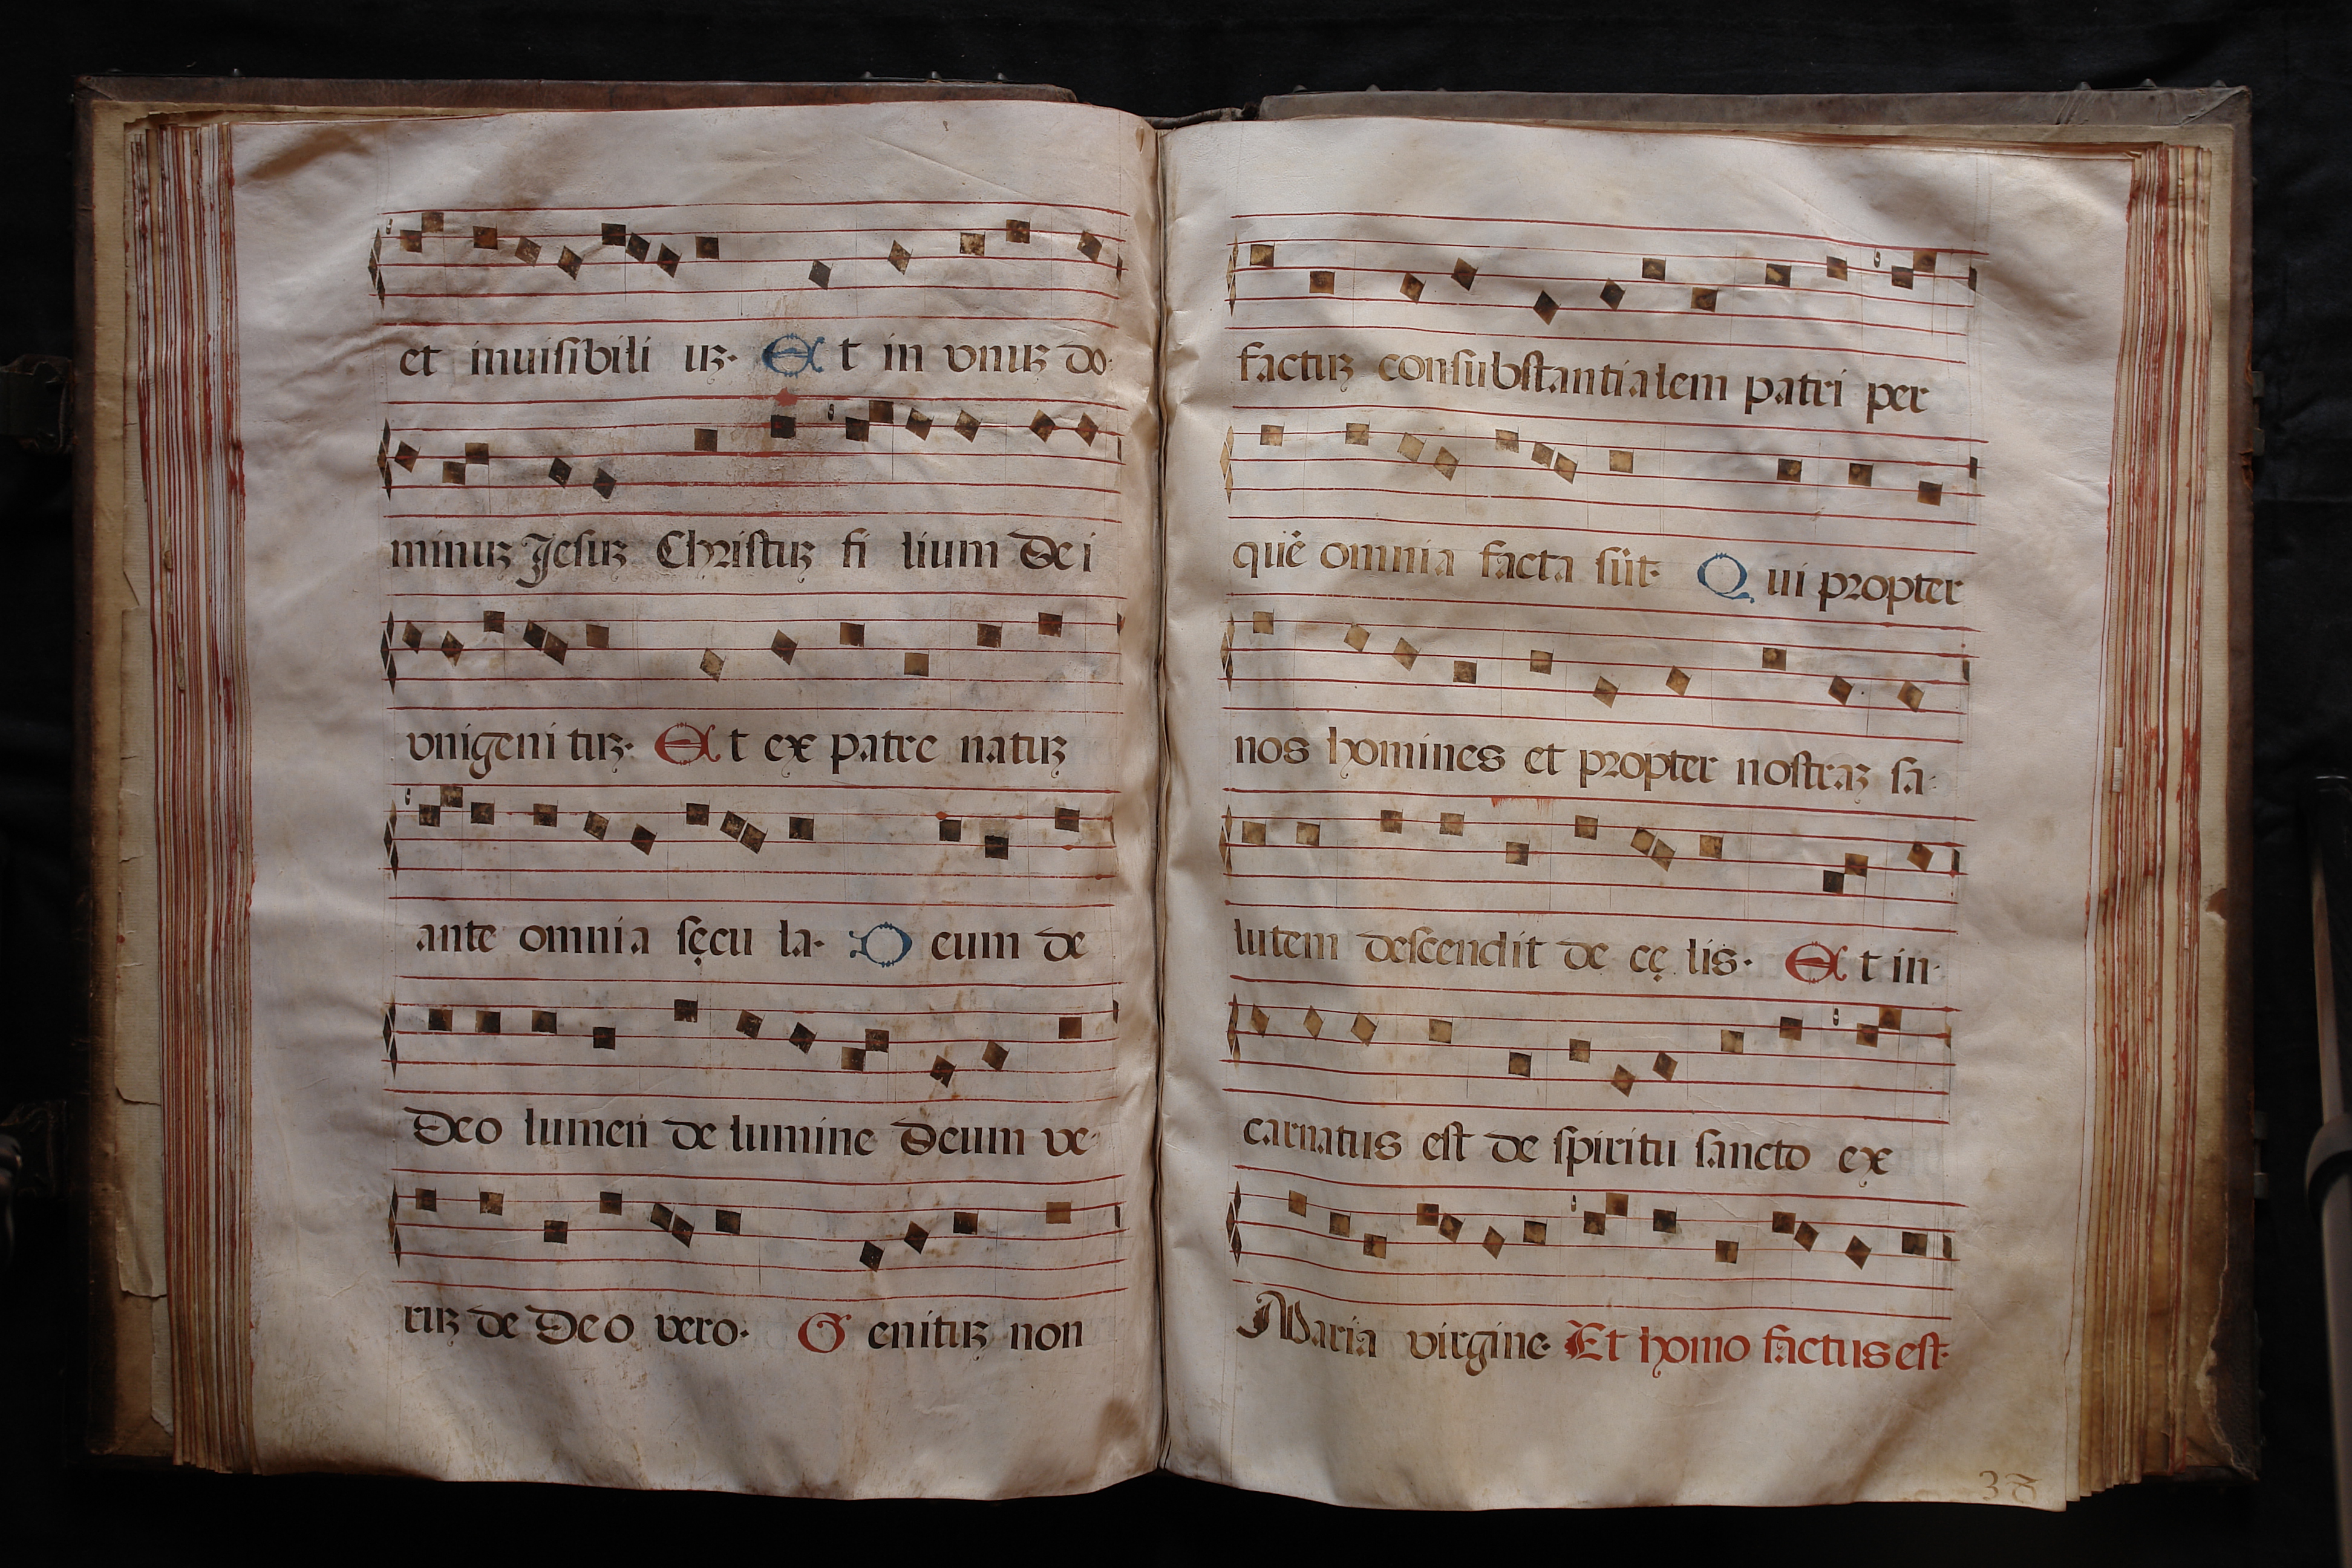 et inuisibili uꝫ. Et in vnuꝫ do
minuꝫ Jesuꝫ Christuꝫ fi lium De i
vnigeni tuꝫ. Et ex patre natuꝫ
ante omnia sęcu la. D eum de
Deo lumen de lumine Deum ve
ruꝫ de Deo vero. G enituꝫ non
factuꝫ consubstantialem patri per
quē omnia facta sūt. Q ui propter
nos homines et propter nostraꝫ sa
lutem descendit de cę lis. Et in
carnatus est de spiritu sancto ex
Maria virgine. Et homo factus est.
38